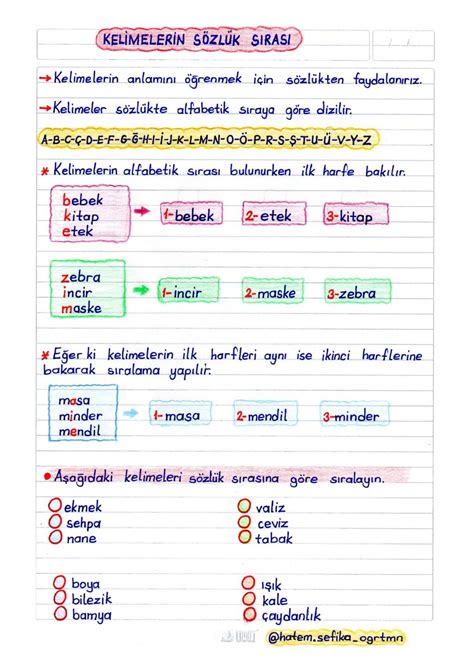 KELİMELERİN SÖZLÜK SIRASI
→Kelimelerin anlamını öğrenmek için sözlükten faydalanırız.
→Kelimeler sözlükte alfabetik sıraya göre dizilir.
A-B-C-Ç-D-E-F-G-Ğ-H-I-İ-J-K-L-M-N-O-Ö-P-R-S-Ş-T-U-Ü-V-Y-Z
* Kelimelerin alfabetik sırası bulunurken ilk harfe bakılır.
bebek
kitap
etek
1-bebek 2-etek 3-kitap
zebra
incir
maske
1-incir 2-maske 3-zebra
* Eğer ki kelimelerin ilk harfleri aynı ise ikinci harflerine
bakarak sıralama yapılır.
masa
minder
mendil
1-masa 2-mendil 3-minder
• Aşağıdaki kelimeleri sözlük sırasına göre sıralayın.
ekmek
sehpa
nane
valiz
ceviz
tabak
boya
bilezik
bamya
ışık
kale
çaydanlık
@hatem.sefika_ogrtmn